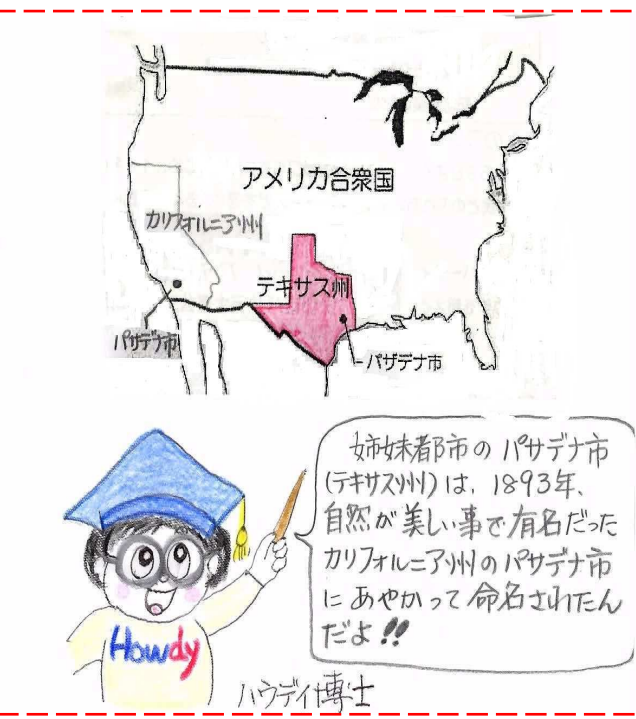 アメリカ合衆国
カリフォルニア州
テキサス州
パサデナ市
パサデナ市
姉妹都市のパサデナ市
(テキサス州)は、1893年、
自然が美しい事で有名だった
カリフォルニア州のパサデナ市
にあやかって命名されたん
だよ!!
Howdy
ハウディ博士